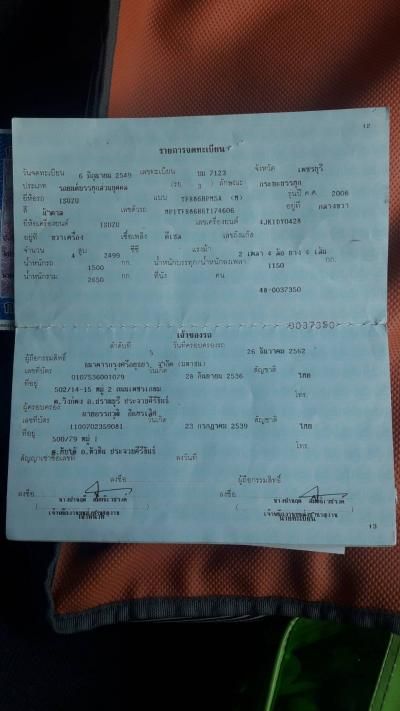 12
รายการจดทะเบียน
วันจดทะเบียน 6 มิถุนายน 2549 เลขทะเบียน บม 7123 จังหวัด เพชรบุรี
ประเภท รถยนต์บรรทุกส่วนบุคคล (รย. 3 ) ลักษณะ กระบะบรรทุก
ยี่ห้อรถ ISUZU แบบ รุ่นปี ค.ศ. 2006
สี เลขตัวรถ อยู่ที่ กลางขวา
ยี่ห้อเครื่องยนต์ ISUZU เลขเครื่องยนต์ 4JK1DY0428
อยู่ที่ ขวาเครื่อง เชื้อเพลิง ดีเซล เลขถังแก๊ส
จำนวน 4 สูบ 2499 ซีซี แรงม้า 2 เพลา 4 ล้อ ยาง 4 เส้น
น้ำหนักรถ 1500 กก. น้ำหนักบรรทุก/น้ำหนักลงเพลา 1150 กก.
น้ำหนักรวม 2650 กก. ที่นั่ง คน
48-0037350
0037350
เจ้าของรถ
ลำดับที่ วันที่ครอบครองรถ 26 ธันวาคม 2562
ผู้ถือกรรมสิทธิ์ ธนาคารกรุงศรีอยุธยา จำกัด (มหาชน)
เลขที่บัตร 0107536001079 วันเกิด 28 กันยายน 2536 สัญชาติ ไทย
ที่อยู่ 502/14-15 หมู่ 2 ถนนเพชรเกษม โทร.
ต.วังก์พง อ.ปราณบุรี ประจวบคีรีขันธ์
ผู้ครอบครอง
เลขที่บัตร 1100702359081 วันเกิด 23 กรกฎาคม 2539 สัญชาติ ไทย
ที่อยู่ 500/79 หมู่ 1 โทร.
อ.หัวหิน ประจวบคีรีขันธ์
สัญญาเช่าซื้อเลขที่ ลงวันที่
ลงชื่อ ผู้ถือกรรมสิทธิ์
ลงชื่อ ลงชื่อ
นายทะเบียน
13